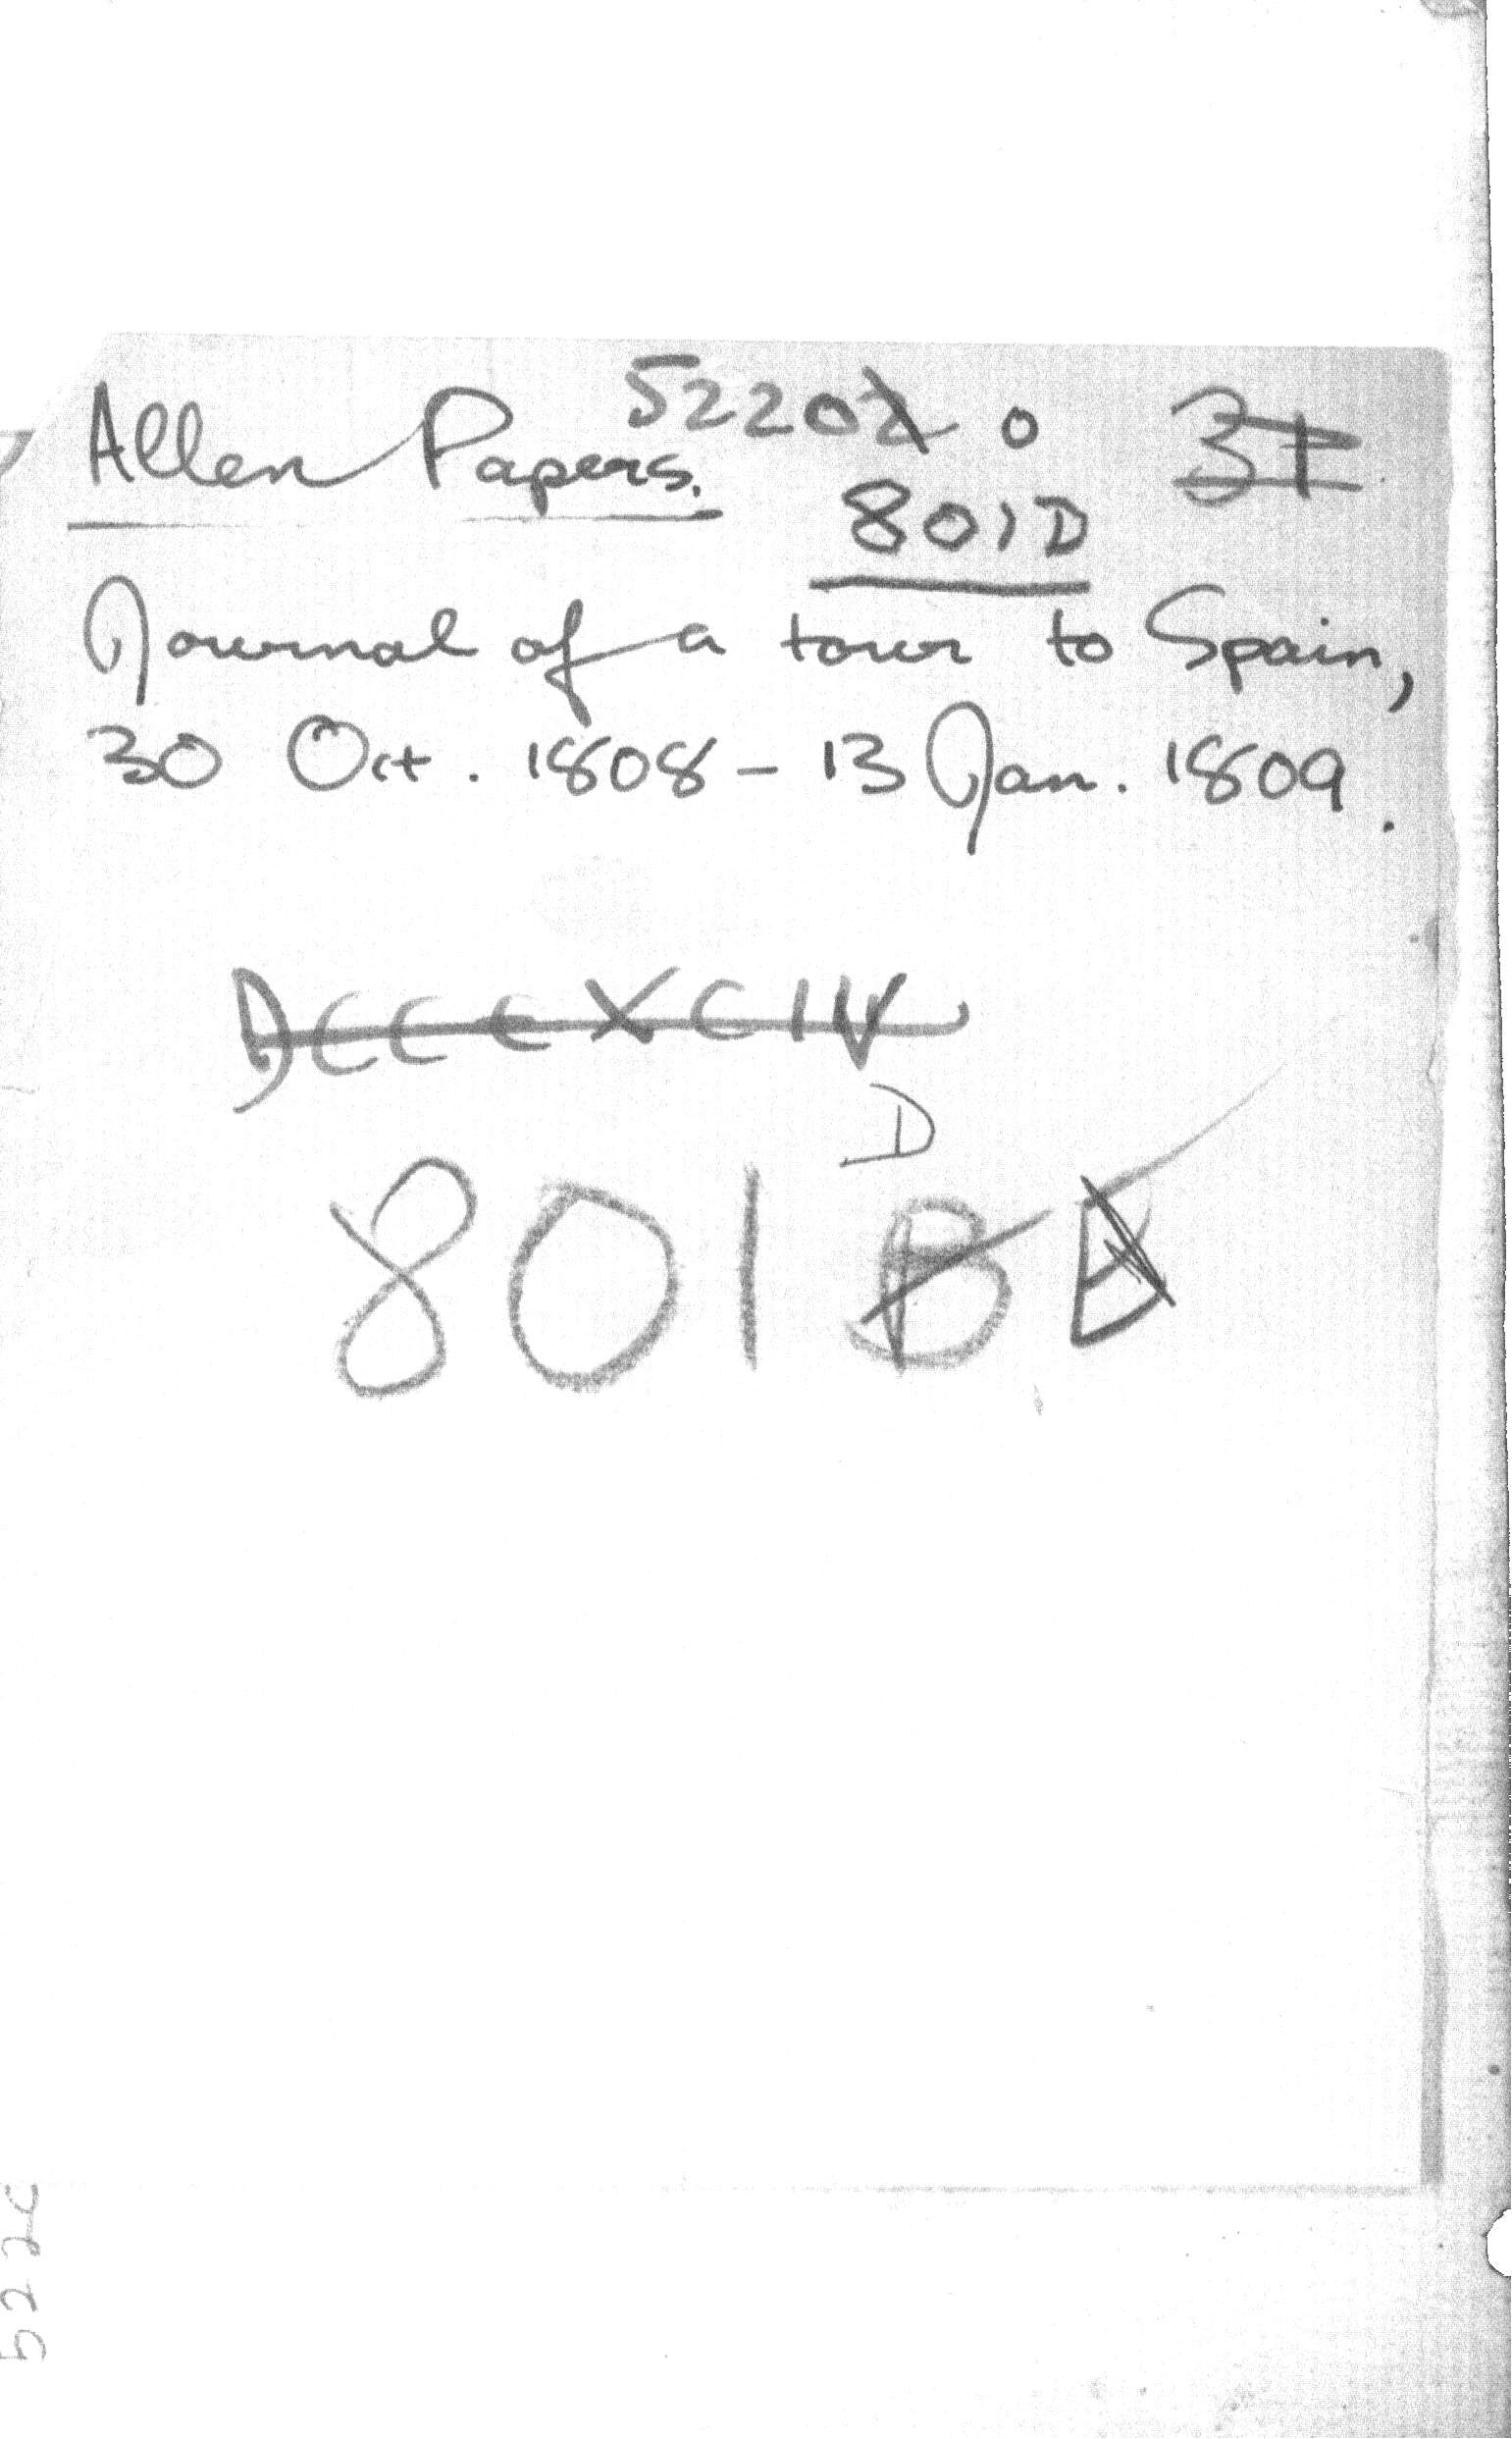 Allen Papers. 52202 0 31
801D
Journal of a tour to Spain,
30 Oct. 1808 - 13 Jan. 1809.
DCCCXCIV
D
801 B
522